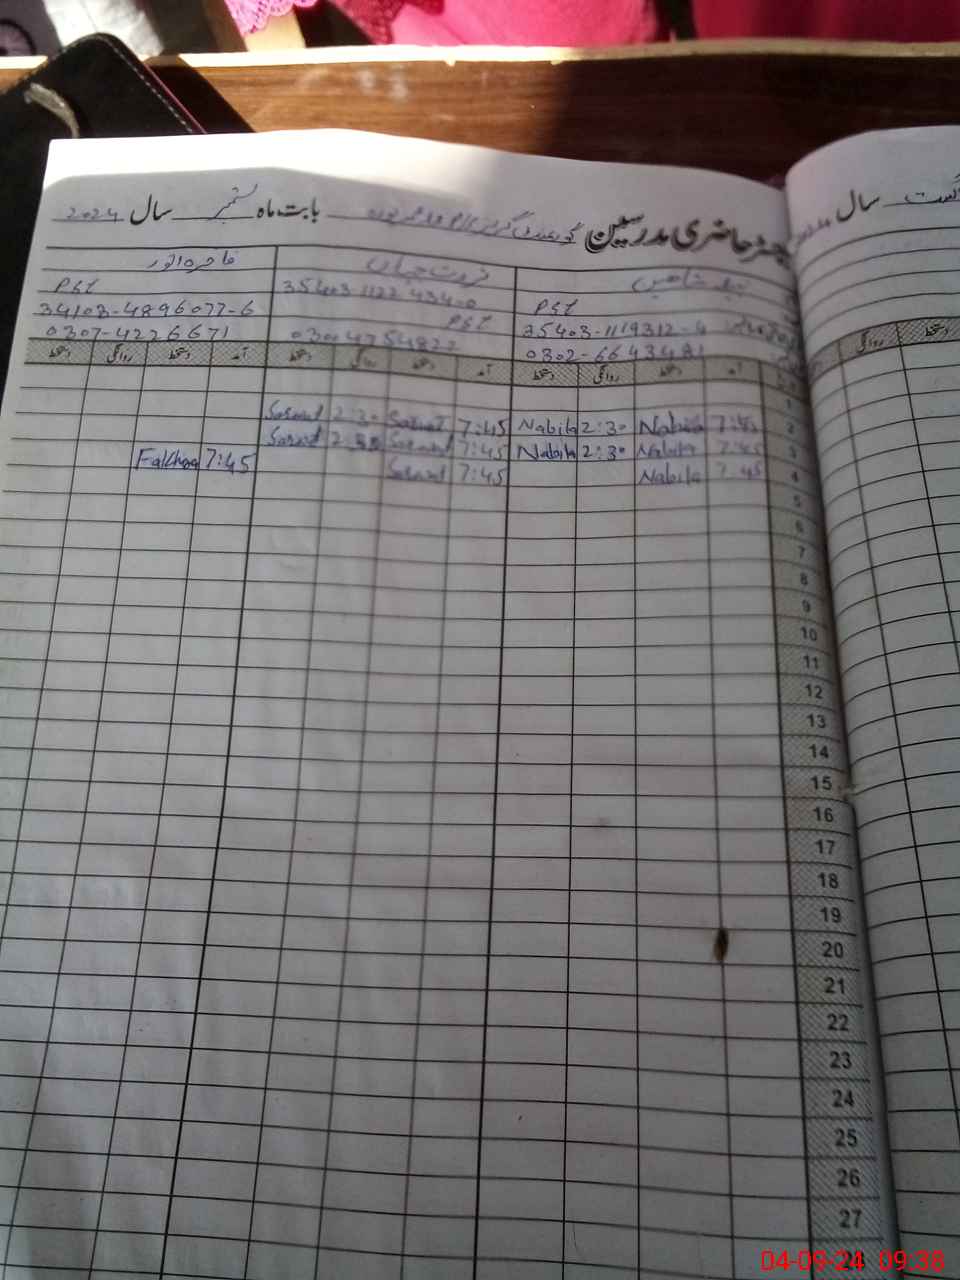 رجسٹر حاضری مدرسین گورنمنٹ گرلز بابت ماہ ستمبر سال 2024
سال
نبیلہ شاہین
ثروت جہاں
فاخرہ انور
PST
35403-1122434-0
PST
35403-1119312-4
PST
34103-4896077-6
0302-6643481
03004754822
0307-4226671
آمد دستخط روانگی دستخط آمد دستخط روانگی دستخط آمد دستخط روانگی دستخط
روانگی دستخط
1
2 7:45 Nabila 2:30 Nabila 7:45 Sarwat 2:30 Sarwat
3 7:45 Nabila 2:30 Nabila 7:45 Sarwat 2:30 Sarwat
4 7:45 Nabila 7:45 Sarwat 7:45 Fakhra
5
6
7
8
9
10
11
12
13
14
15
16
17
18
19
20
21
22
23
24
25
26
27
04-09-24 09:38